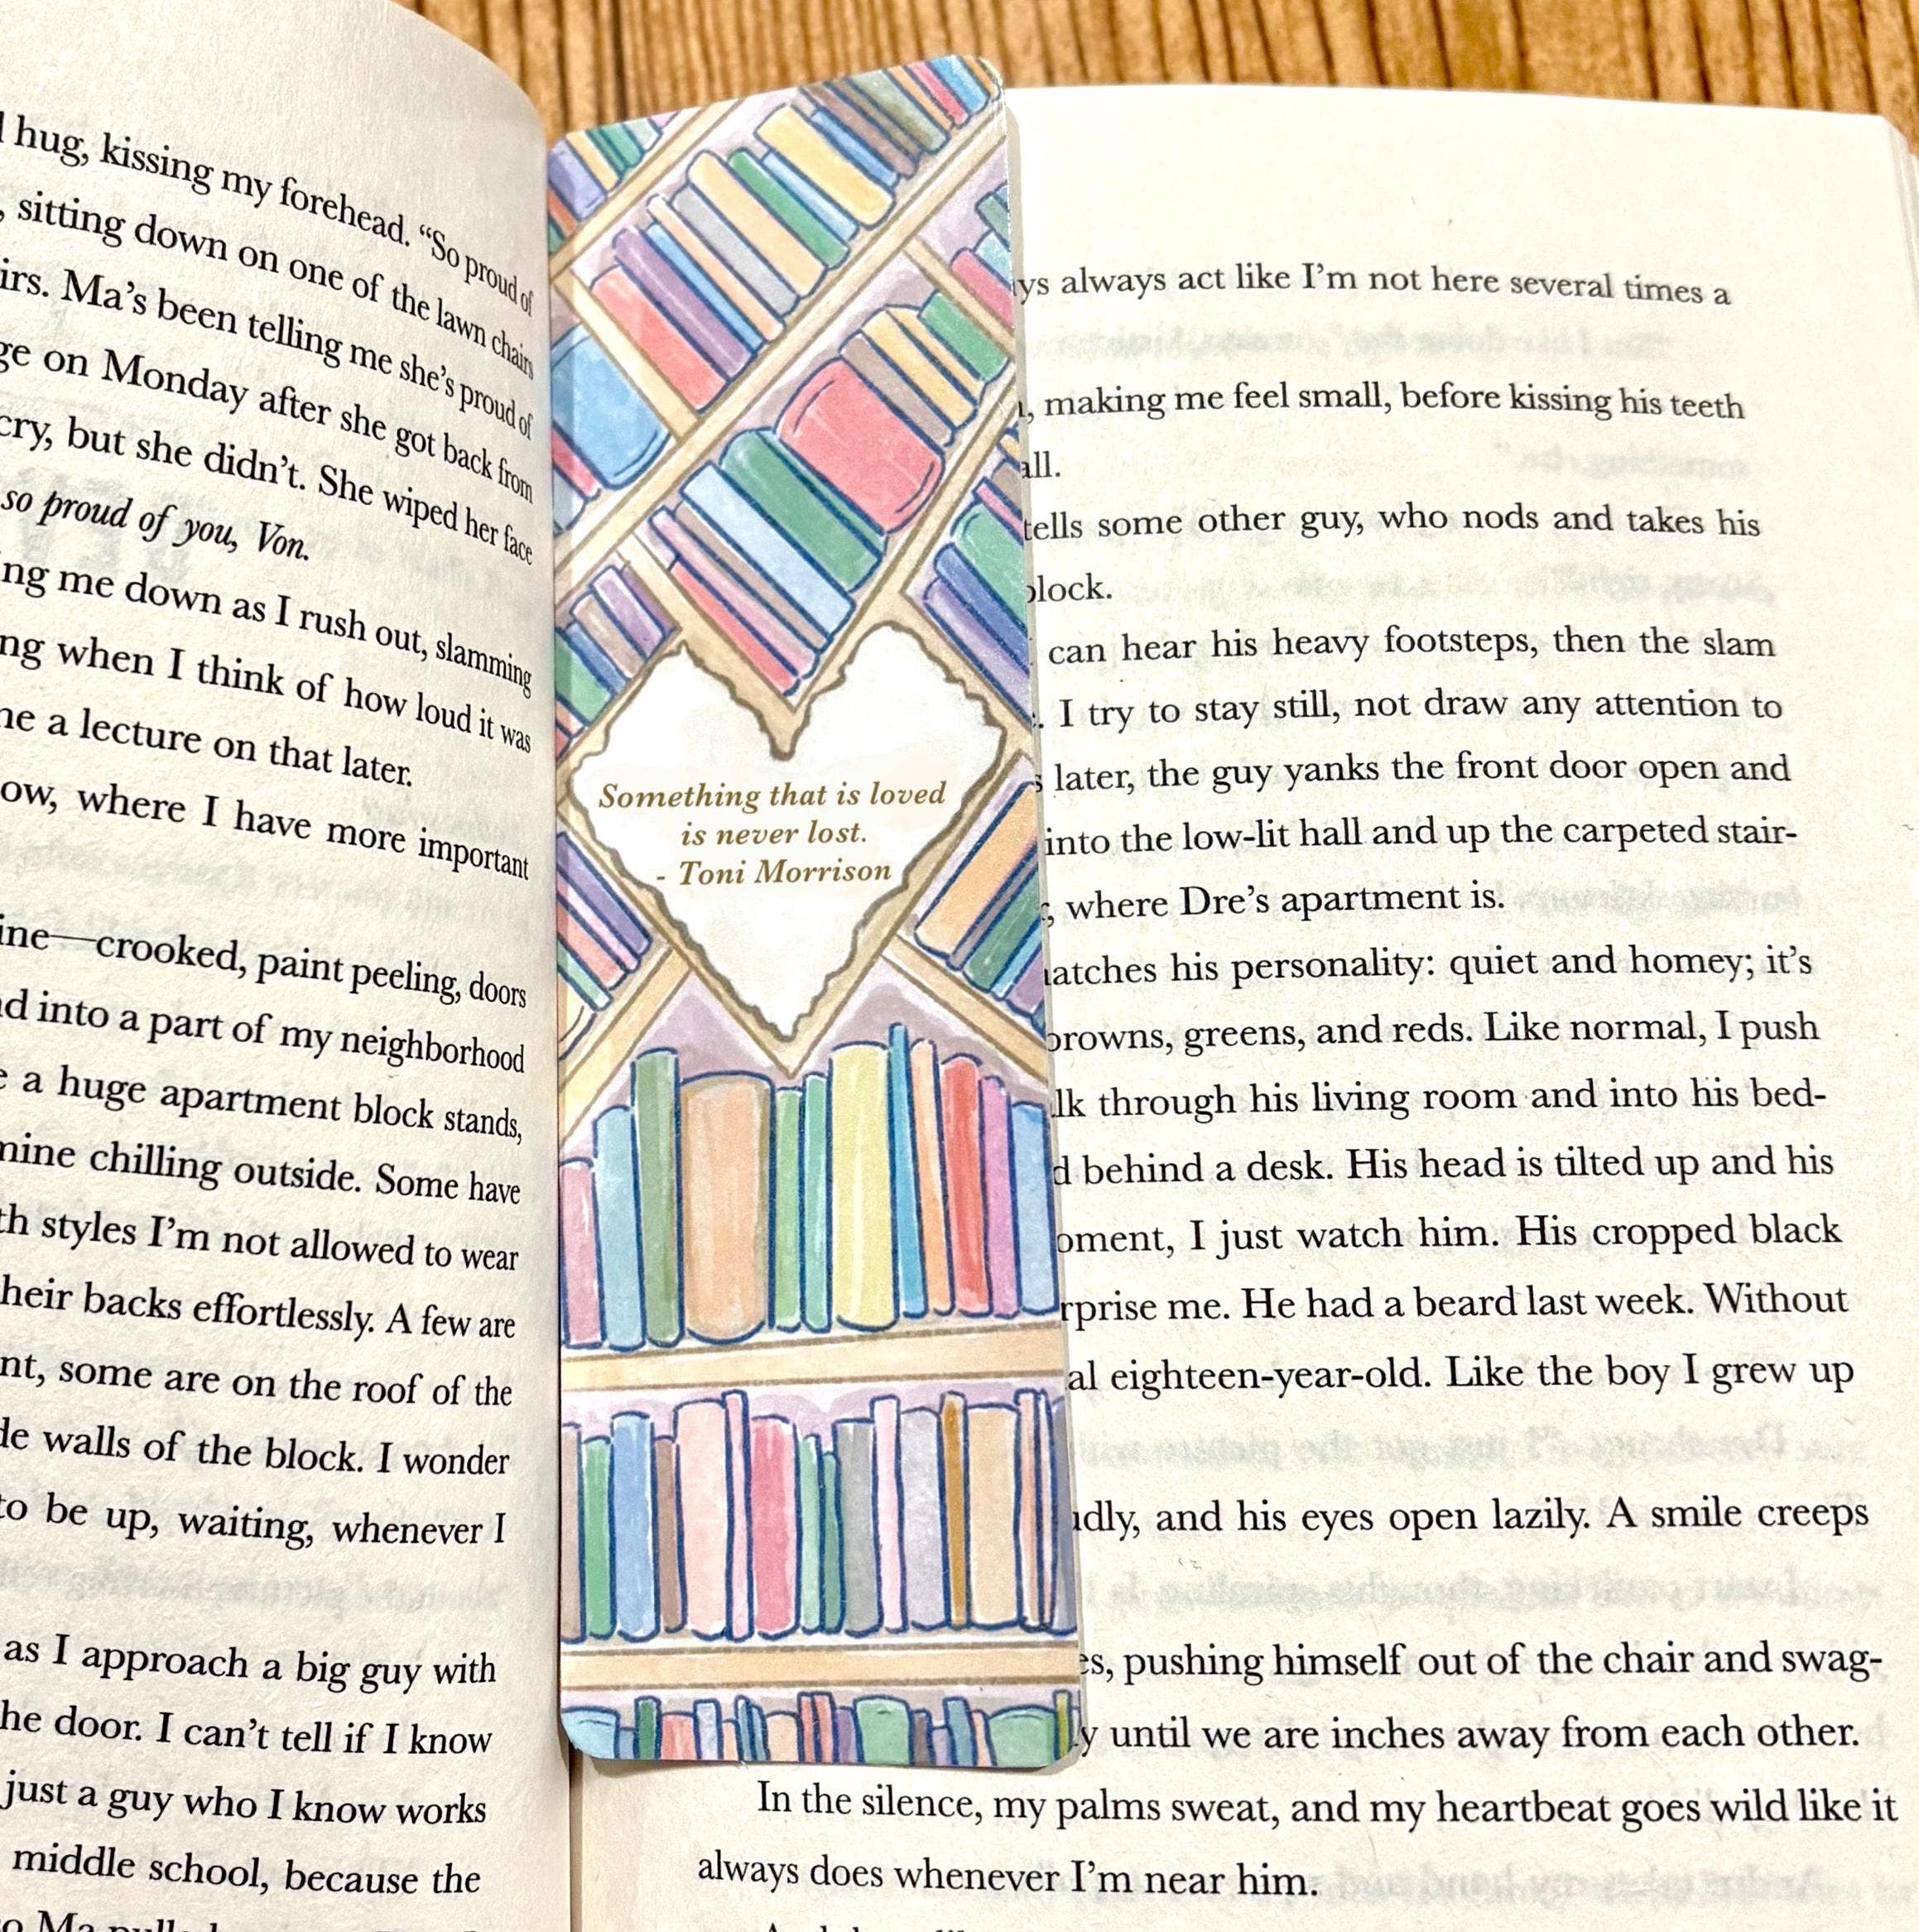 hug, kissing my forehead. “So proud of
, sitting down on one of the lawn chairs
irs. Ma’s been telling me she’s proud of
ge on Monday after she got back from
cry, but she didn’t. She wiped her face
so proud of you, Von.
ng me down as I rush out, slamming
ng when I think of how loud it was
me a lecture on that later.
ow, where I have more important
ine—crooked, paint peeling, doors
into a part of my neighborhood
a huge apartment block stands,
mine chilling outside. Some have
th styles I’m not allowed to wear
heir backs effortlessly. A few are
nt, some are on the roof of the
de walls of the block. I wonder
to be up, waiting, whenever I
as I approach a big guy with
he door. I can’t tell if I know
just a guy who I know works
middle school, because the
Something that is loved
is never lost.
- Toni Morrison
ys always act like I’m not here several times a
, making me feel small, before kissing his teeth
all.
tells some other guy, who nods and takes his
block.
can hear his heavy footsteps, then the slam
. I try to stay still, not draw any attention to
s later, the guy yanks the front door open and
into the low-lit hall and up the carpeted stair-
, where Dre’s apartment is.
atches his personality: quiet and homey; it’s
browns, greens, and reds. Like normal, I push
lk through his living room and into his bed-
d behind a desk. His head is tilted up and his
oment, I just watch him. His cropped black
rprise me. He had a beard last week. Without
al eighteen-year-old. Like the boy I grew up
dly, and his eyes open lazily. A smile creeps
es, pushing himself out of the chair and swag-
y until we are inches away from each other.
In the silence, my palms sweat, and my heartbeat goes wild like it
always does whenever I’m near him.